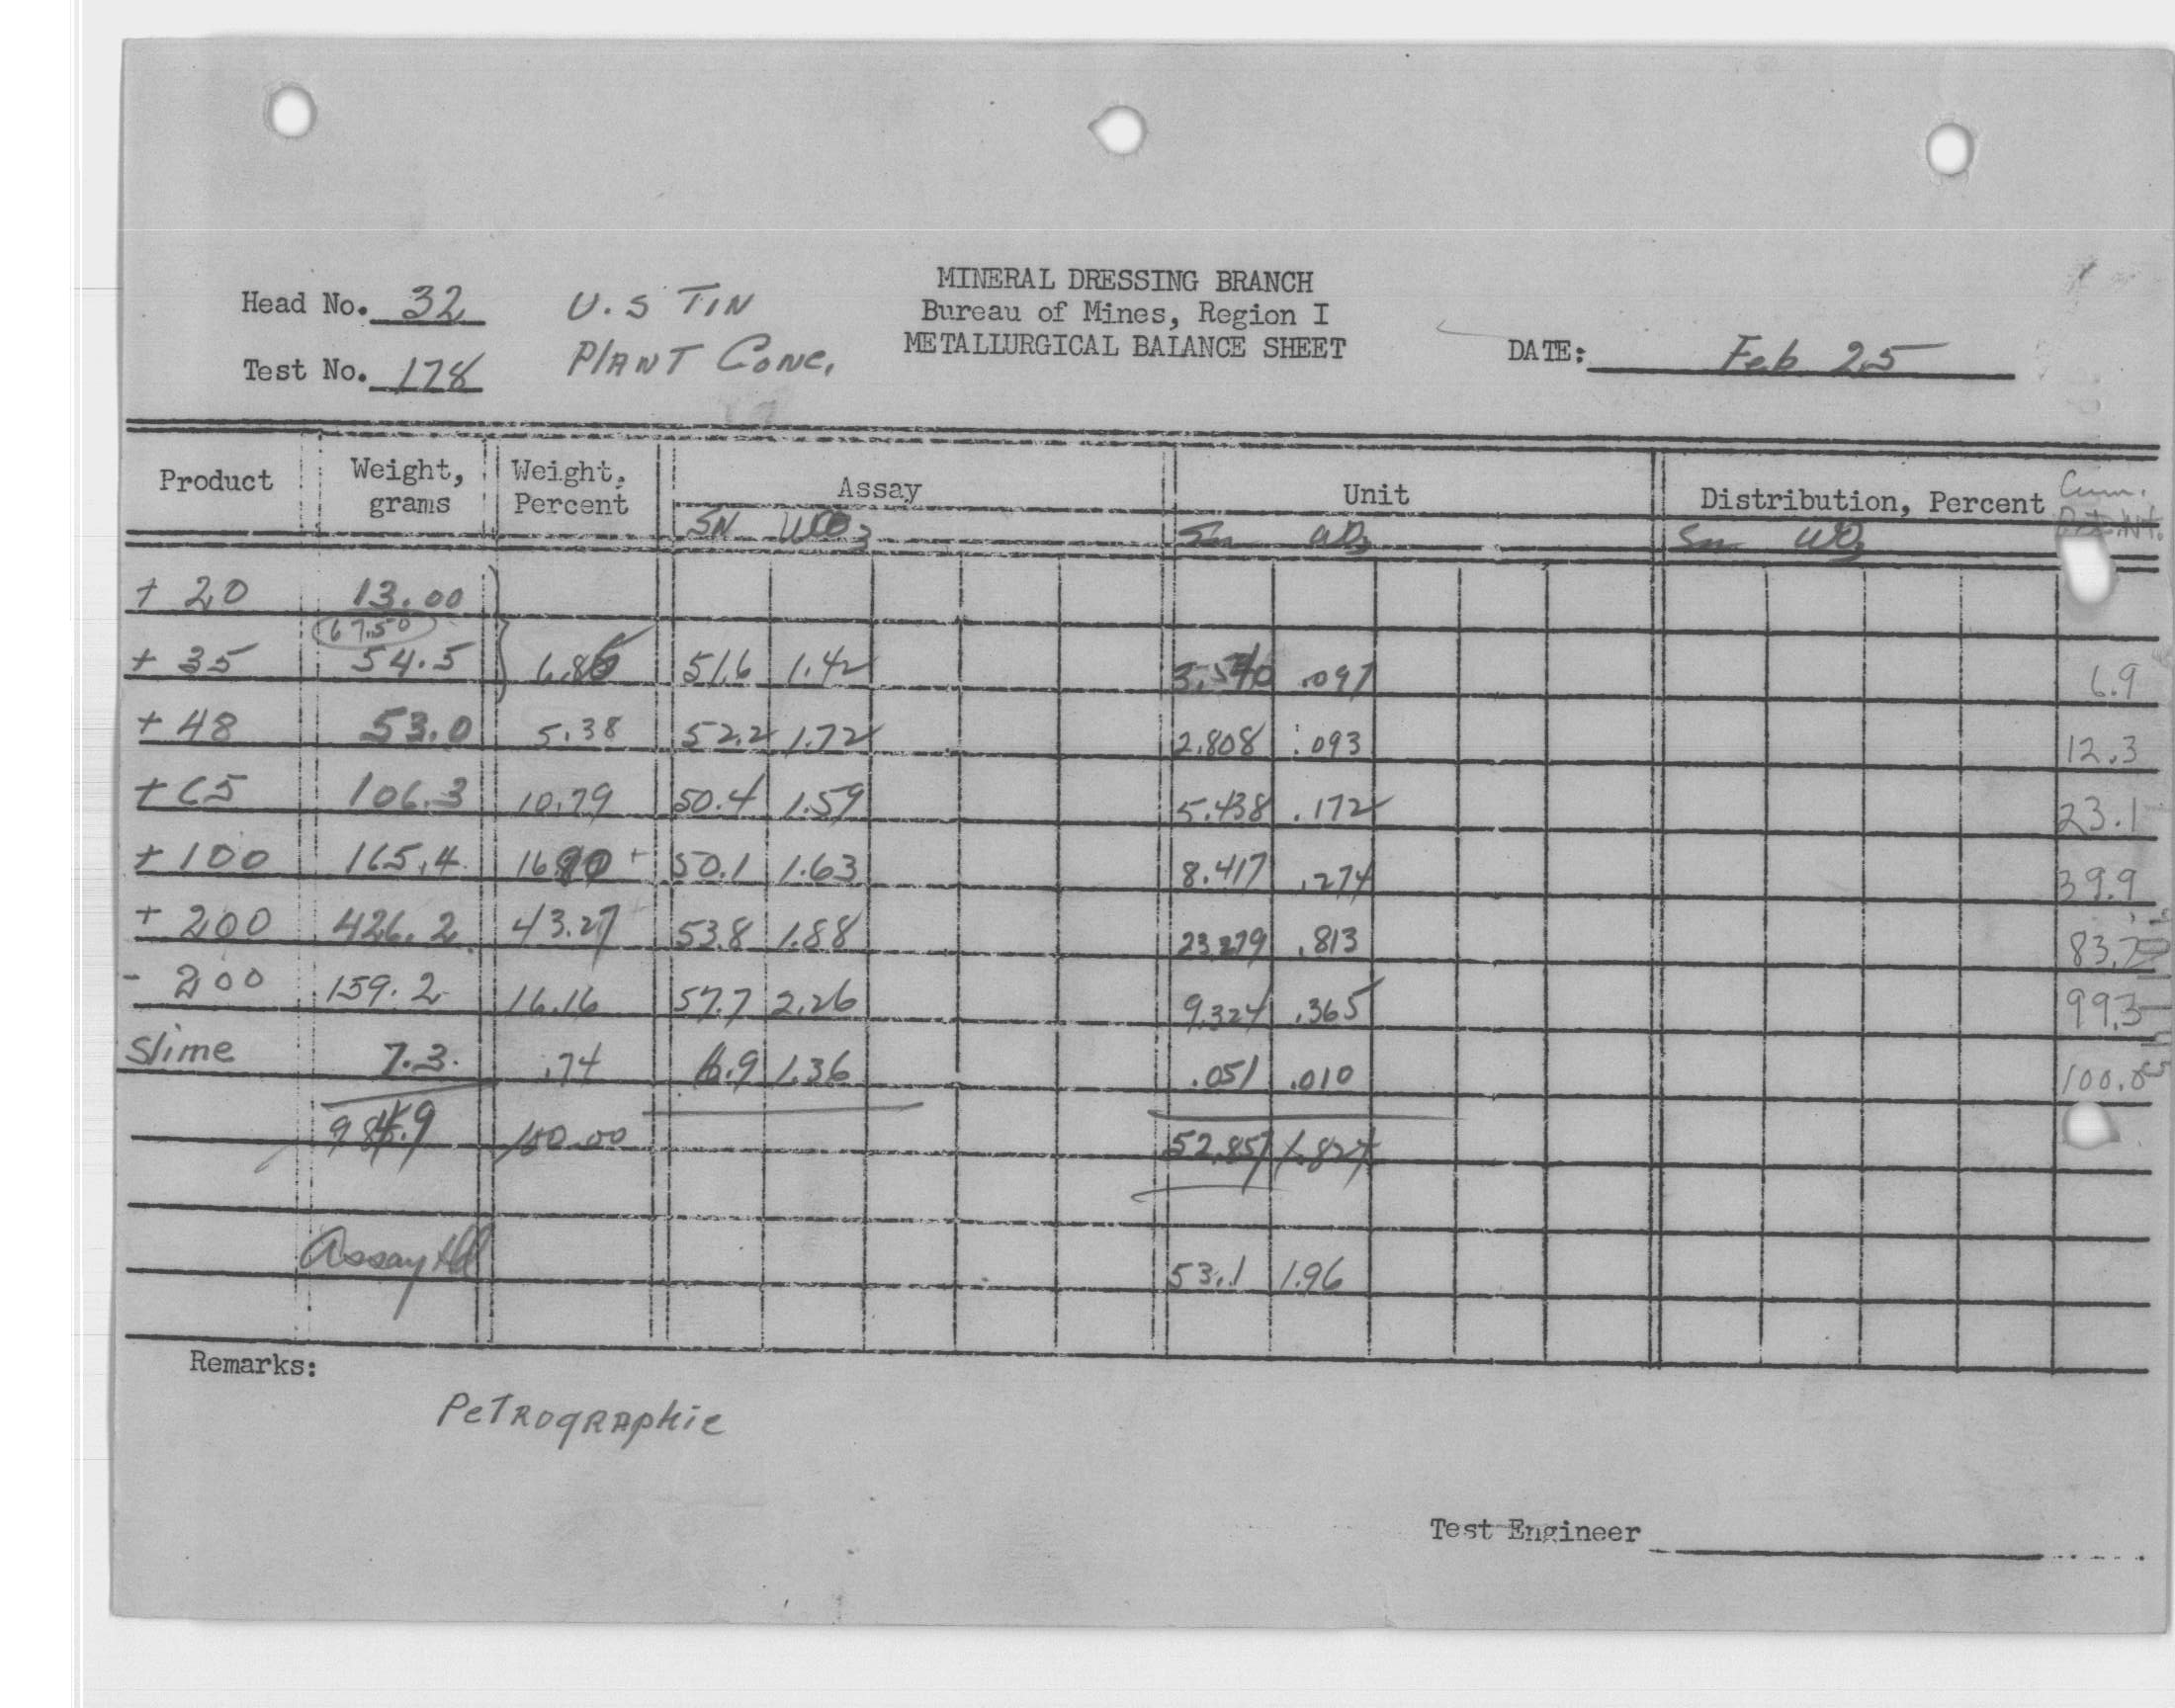 MINERAL DRESSING BRANCH
Head No. 32 U.S TIN Bureau of Mines, Region I
METALLURGICAL BALANCE SHEET DATE: Feb 25
Test No. 178 PLANT CONC.
Product Weight, grams Weight, Percent Assay Unit Distribution, Percent Cum.
SN WO3 Sn WO3 Sn WO3
+ 20 13.00
67.50
+ 35 54.5 6.86 51.6 1.42 3.540 .097 6.9
+ 48 53.0 5.38 52.2 1.72 2.808 .093 12.3
+ 65 106.3 10.79 50.4 1.59 5.438 .172 23.1
+ 100 165.4 16.80 50.1 1.63 8.417 .274 39.9
+ 200 426.2 43.27 53.8 1.88 23.279 .813 83.2
- 200 159.2 16.16 57.7 2.26 9.324 .365 99.3
Slime 7.3 .74 6.9 1.36 .051 .010 100.0
984.9 100.00 52.857 1.824
Assay Hd 53.1 1.96
Remarks:
PETROGRAPHIC
Test Engineer